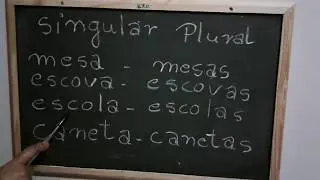 Singular Plural
mesa - mesas
escova - escovas
escola - escolas
caneta - canetas